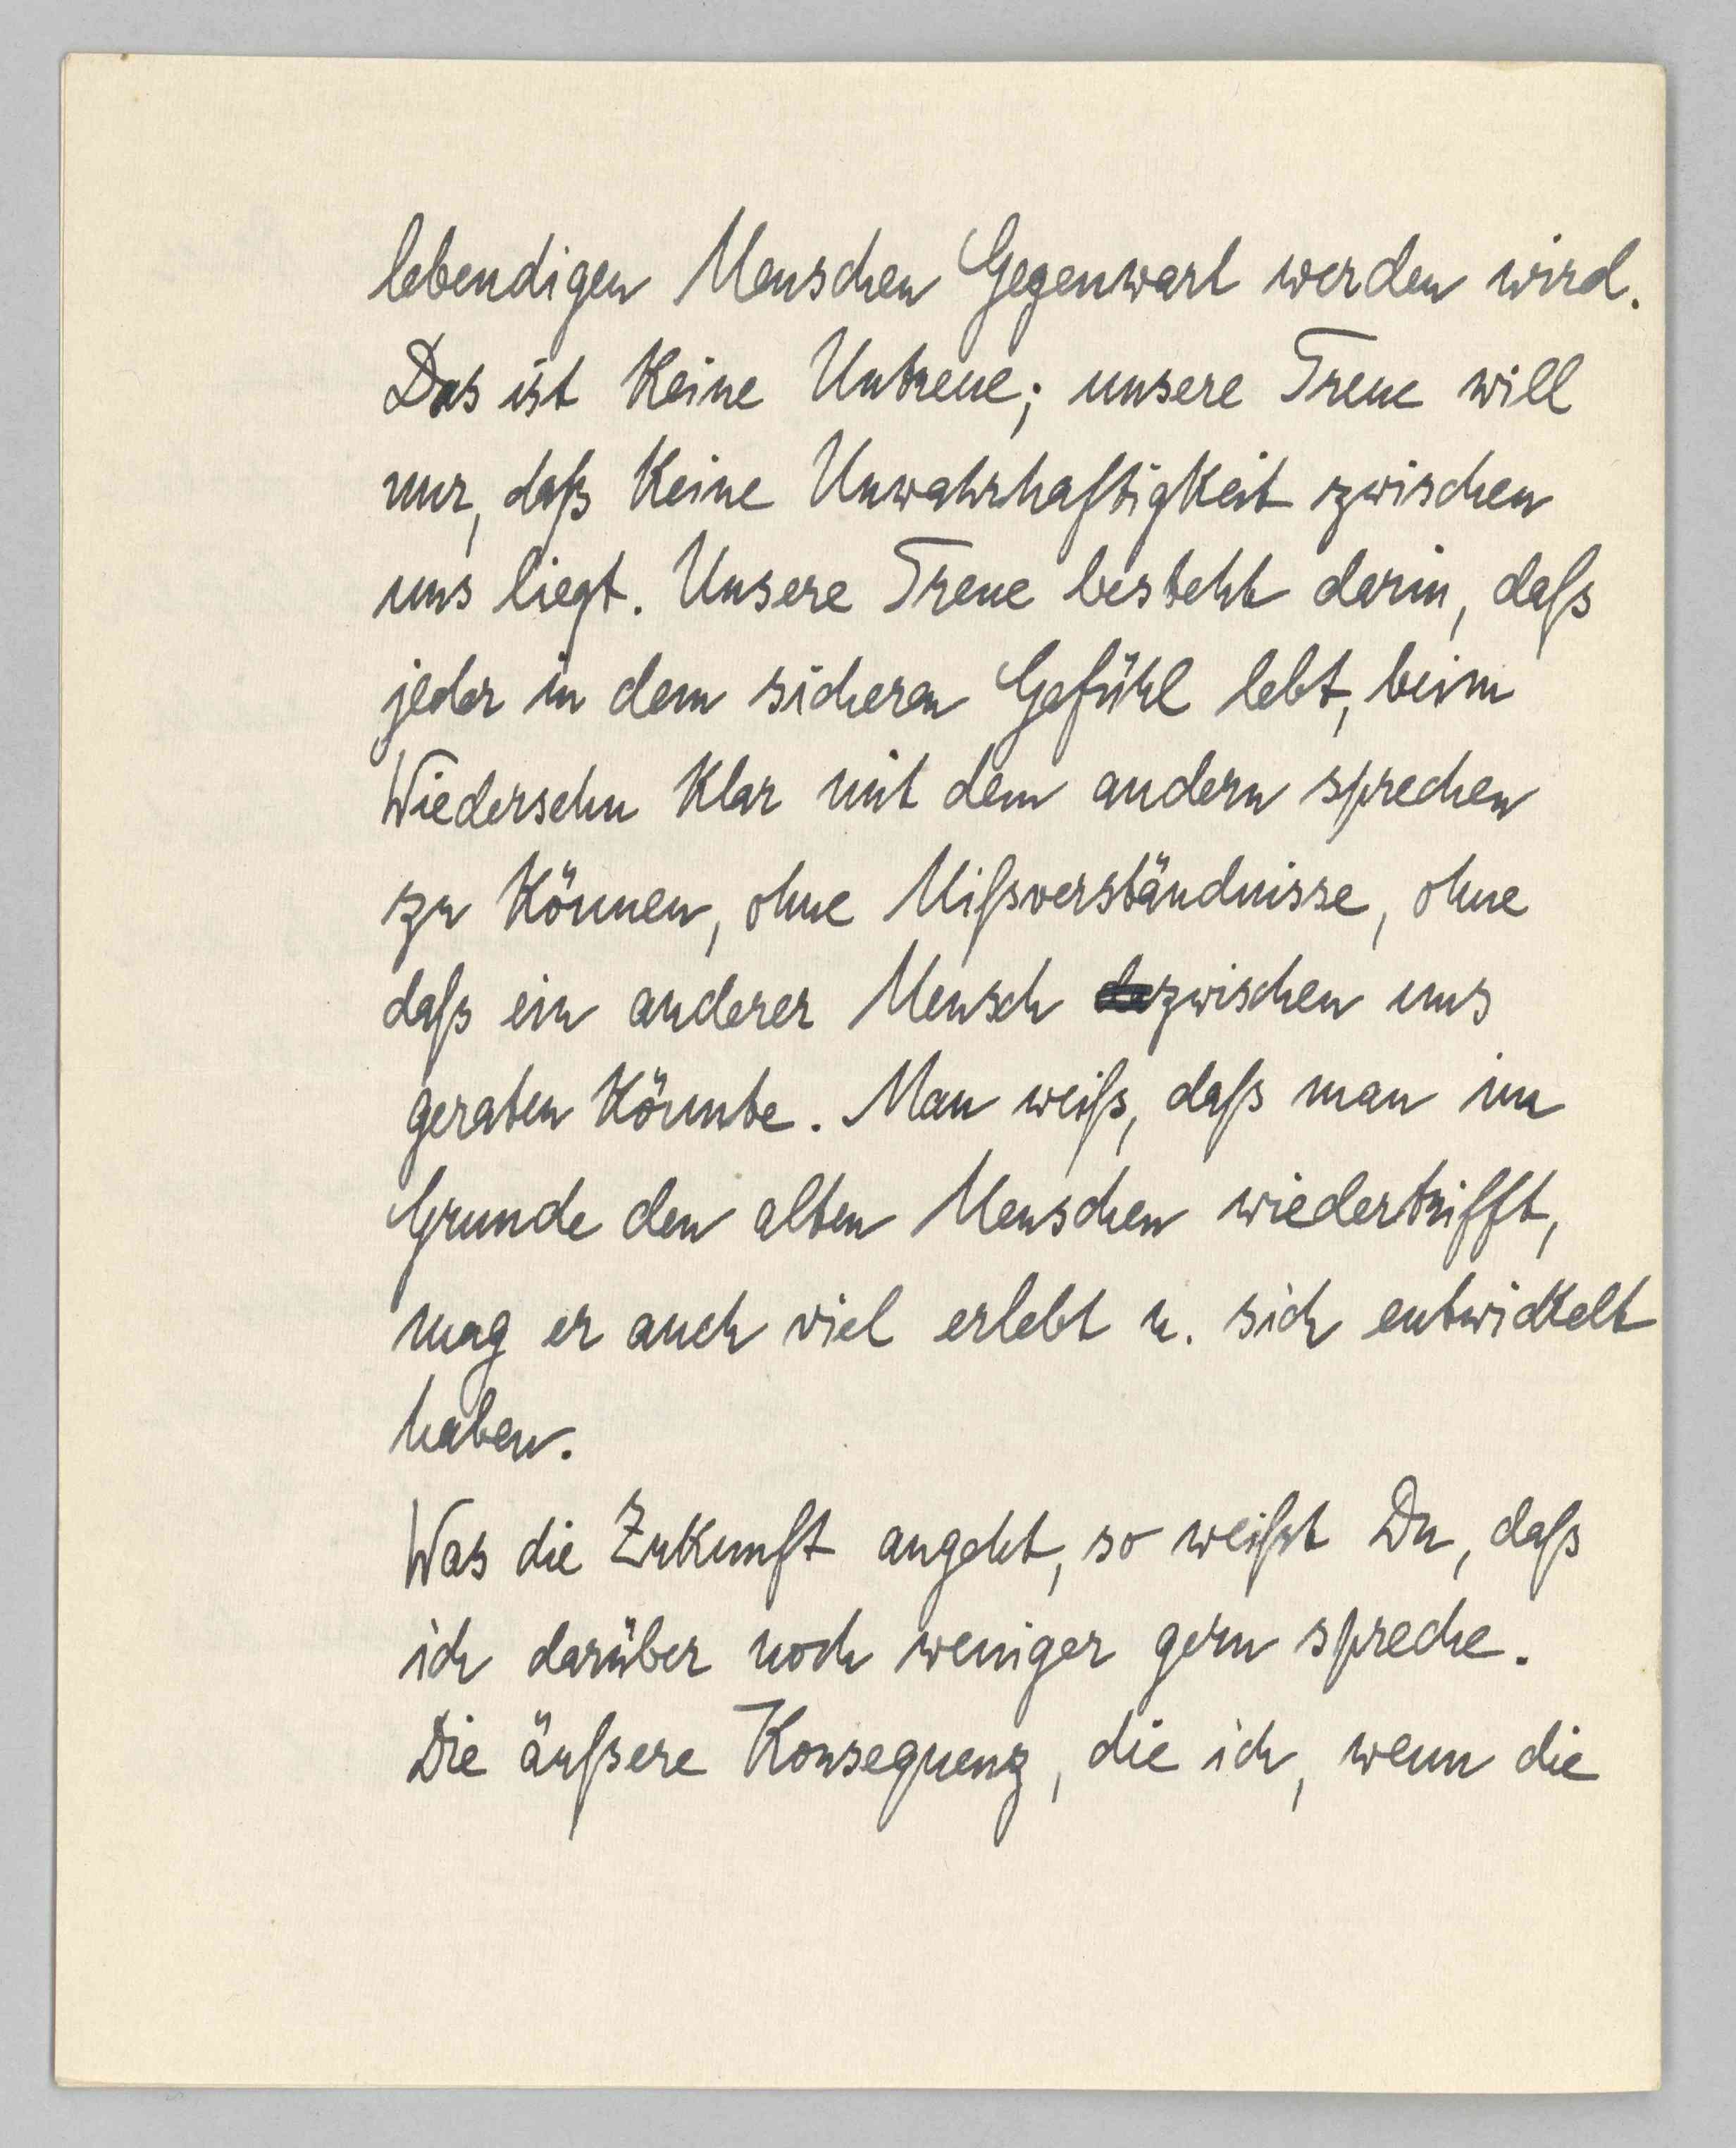 lebendigen Menschen Gegenwart werden wird.
Das ist keine Untreue; unsere Treue will
nur, daß keine Unwahrhaftigkeit zwischen
uns liegt. Unsere Treue besteht darin, daß
jeder in dem sicheren Gefühl lebt, beim
Wiedersehn klar mit dem andern sprechen
zu können, ohne Mißverständnisse, ohne
daß ein anderer Mensch zwischen uns
geraten könnte. Man weiß, daß man im
Grunde den alten Menschen wiedertrifft,
mag er auch viel erlebt u. sich entwickelt
haben.
Was die Zukunft angeht, so weißt Du, daß
ich darüber noch weniger gern spreche.
Die äußere Konsequenz, die ich, wenn die